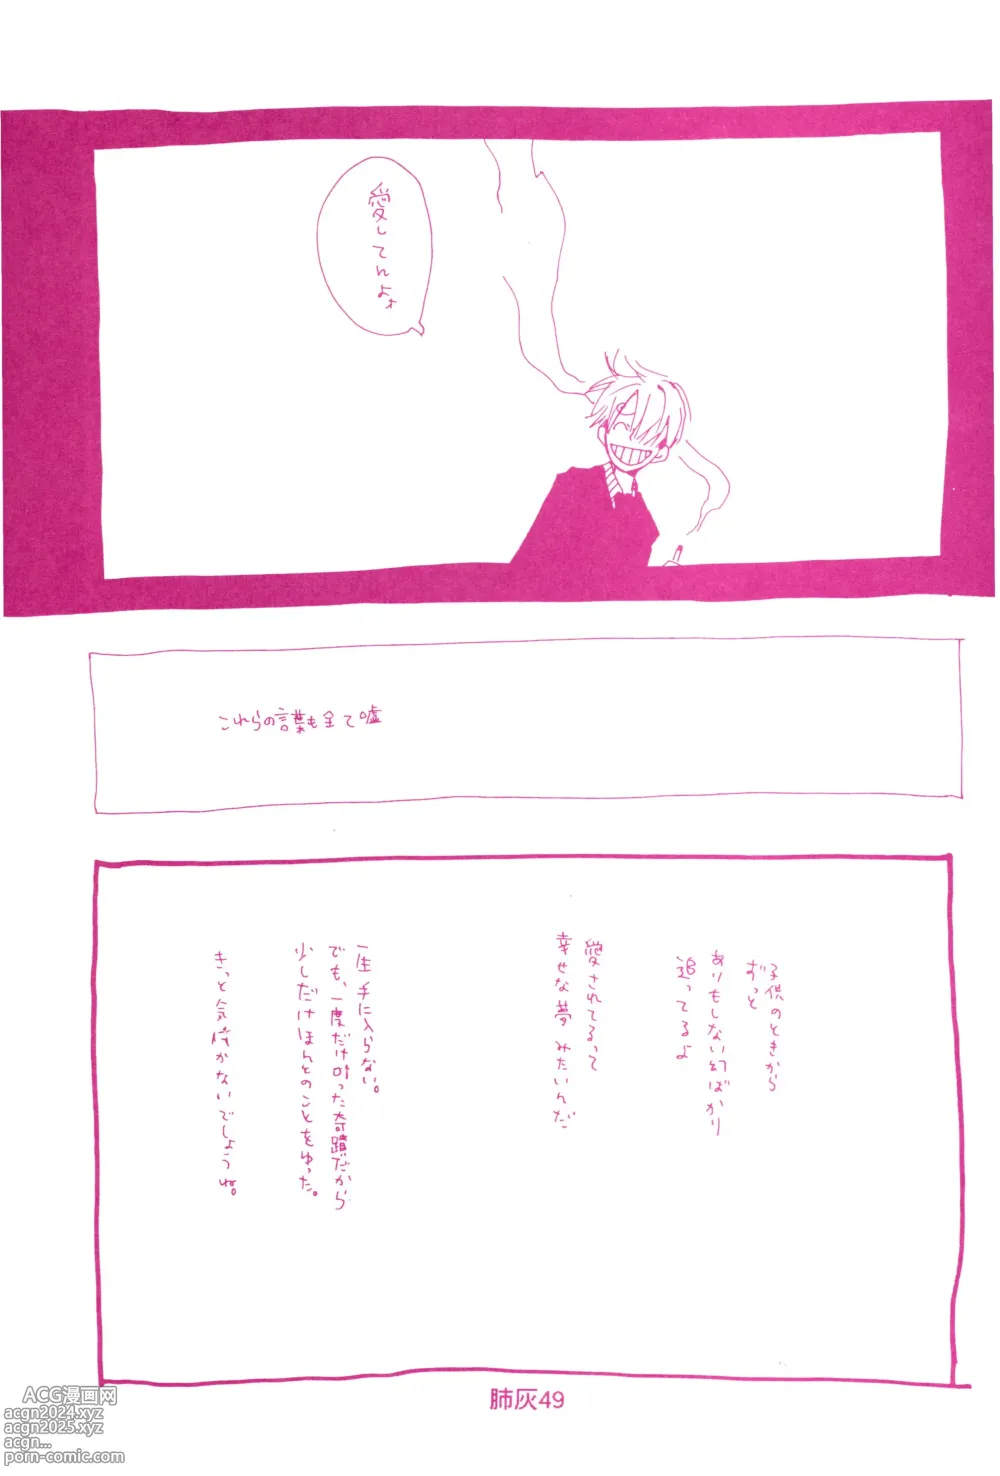 愛してんよォ
これらの言葉も全て嘘
子供のときから
ずっと
ありもしない幻ばかり
追ってるよ
愛されてるって
幸せな夢みたいんだ
一生手に入らない。
でも、一度だけ叶った奇蹟だから
少しだけほんとのことをゆった。
きっと気付かないでしょうね。
肺灰49
ACG漫画网
acgn2024.xyz
acgn2025.xyz
acgn...
porn-comic.com